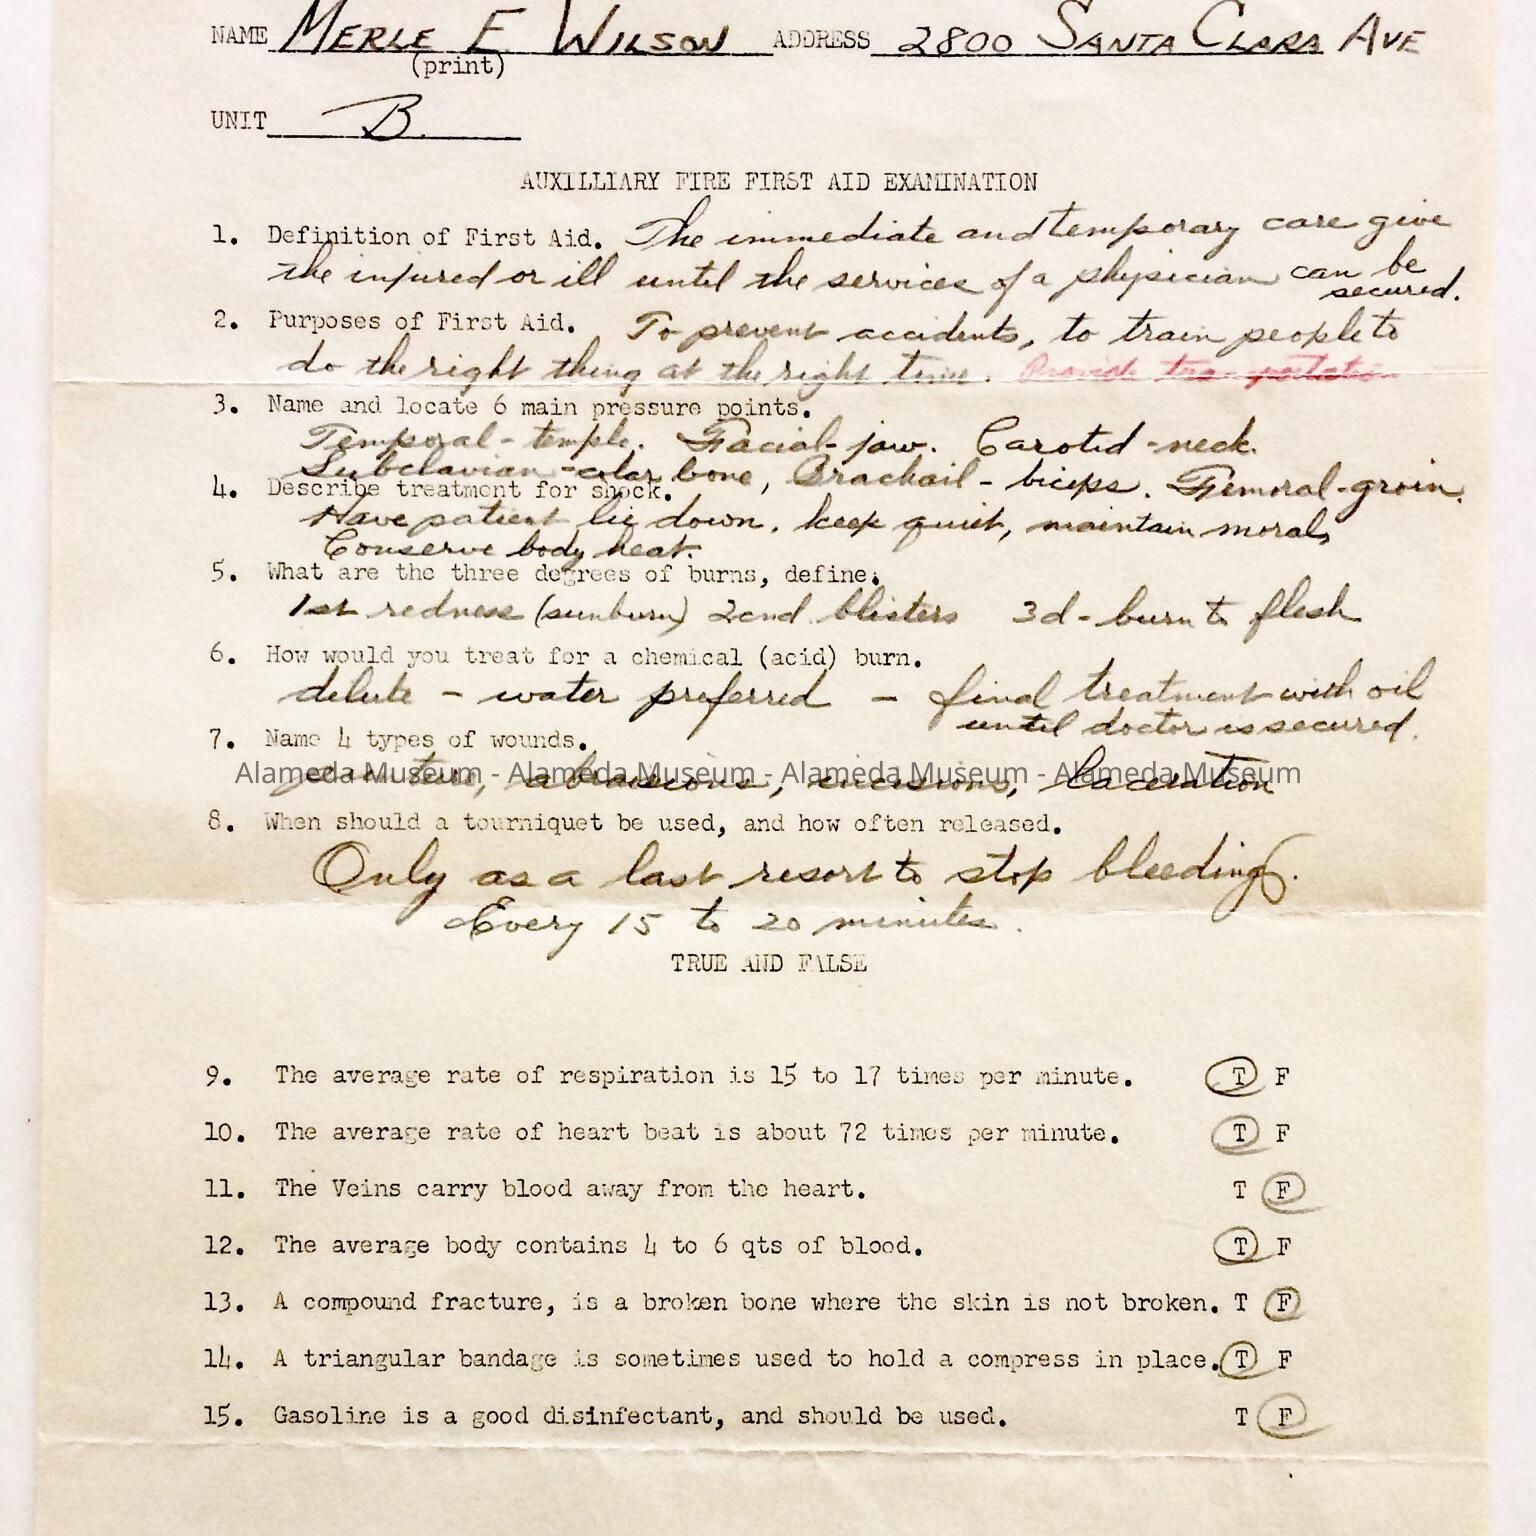 NAME MERLE E WILSON ADDRESS 2800 SANTA CLARA AVE
(print)
UNIT B.
AUXILLIARY FIRE FIRST AID EXAMINATION
1. Definition of First Aid. The immediate and temporary care give
the injured or ill until the services of a physician can be
secured.
2. Purposes of First Aid. To prevent accidents, to train people to
do the right thing at the right time. Provide transportation
3. Name and locate 6 main pressure points.
Temporal - temple. Facial - jaw. Carotid - neck.
Subclavian - colar bone, Brachail - biceps. Femoral - groin.
4. Describe treatment for shock.
Have patient lie down, keep quiet, maintain moral,
Conserve body heat.
5. What are the three degrees of burns, define.
1st redness (sunburn) 2cnd blisters 3d - burn to flesh
6. How would you treat for a chemical (acid) burn.
delute - water preferred - final treatment with oil
until doctor is secured.
7. Name 4 types of wounds.
Alameda Museum - Alameda Museum - Alameda Museum - Alameda Museum
puncture, abrasions, incisions, laceration
8. When should a tourniquet be used, and how often released.
Only as a last resort to stop bleeding.
Every 15 to 20 minutes.
TRUE AND FALSE
9. The average rate of respiration is 15 to 17 times per minute. T F
10. The average rate of heart beat is about 72 times per minute. T F
11. The Veins carry blood away from the heart. T F
12. The average body contains 4 to 6 qts of blood. T F
13. A compound fracture, is a broken bone where the skin is not broken. T F
14. A triangular bandage is sometimes used to hold a compress in place. T F
15. Gasoline is a good disinfectant, and should be used. T F